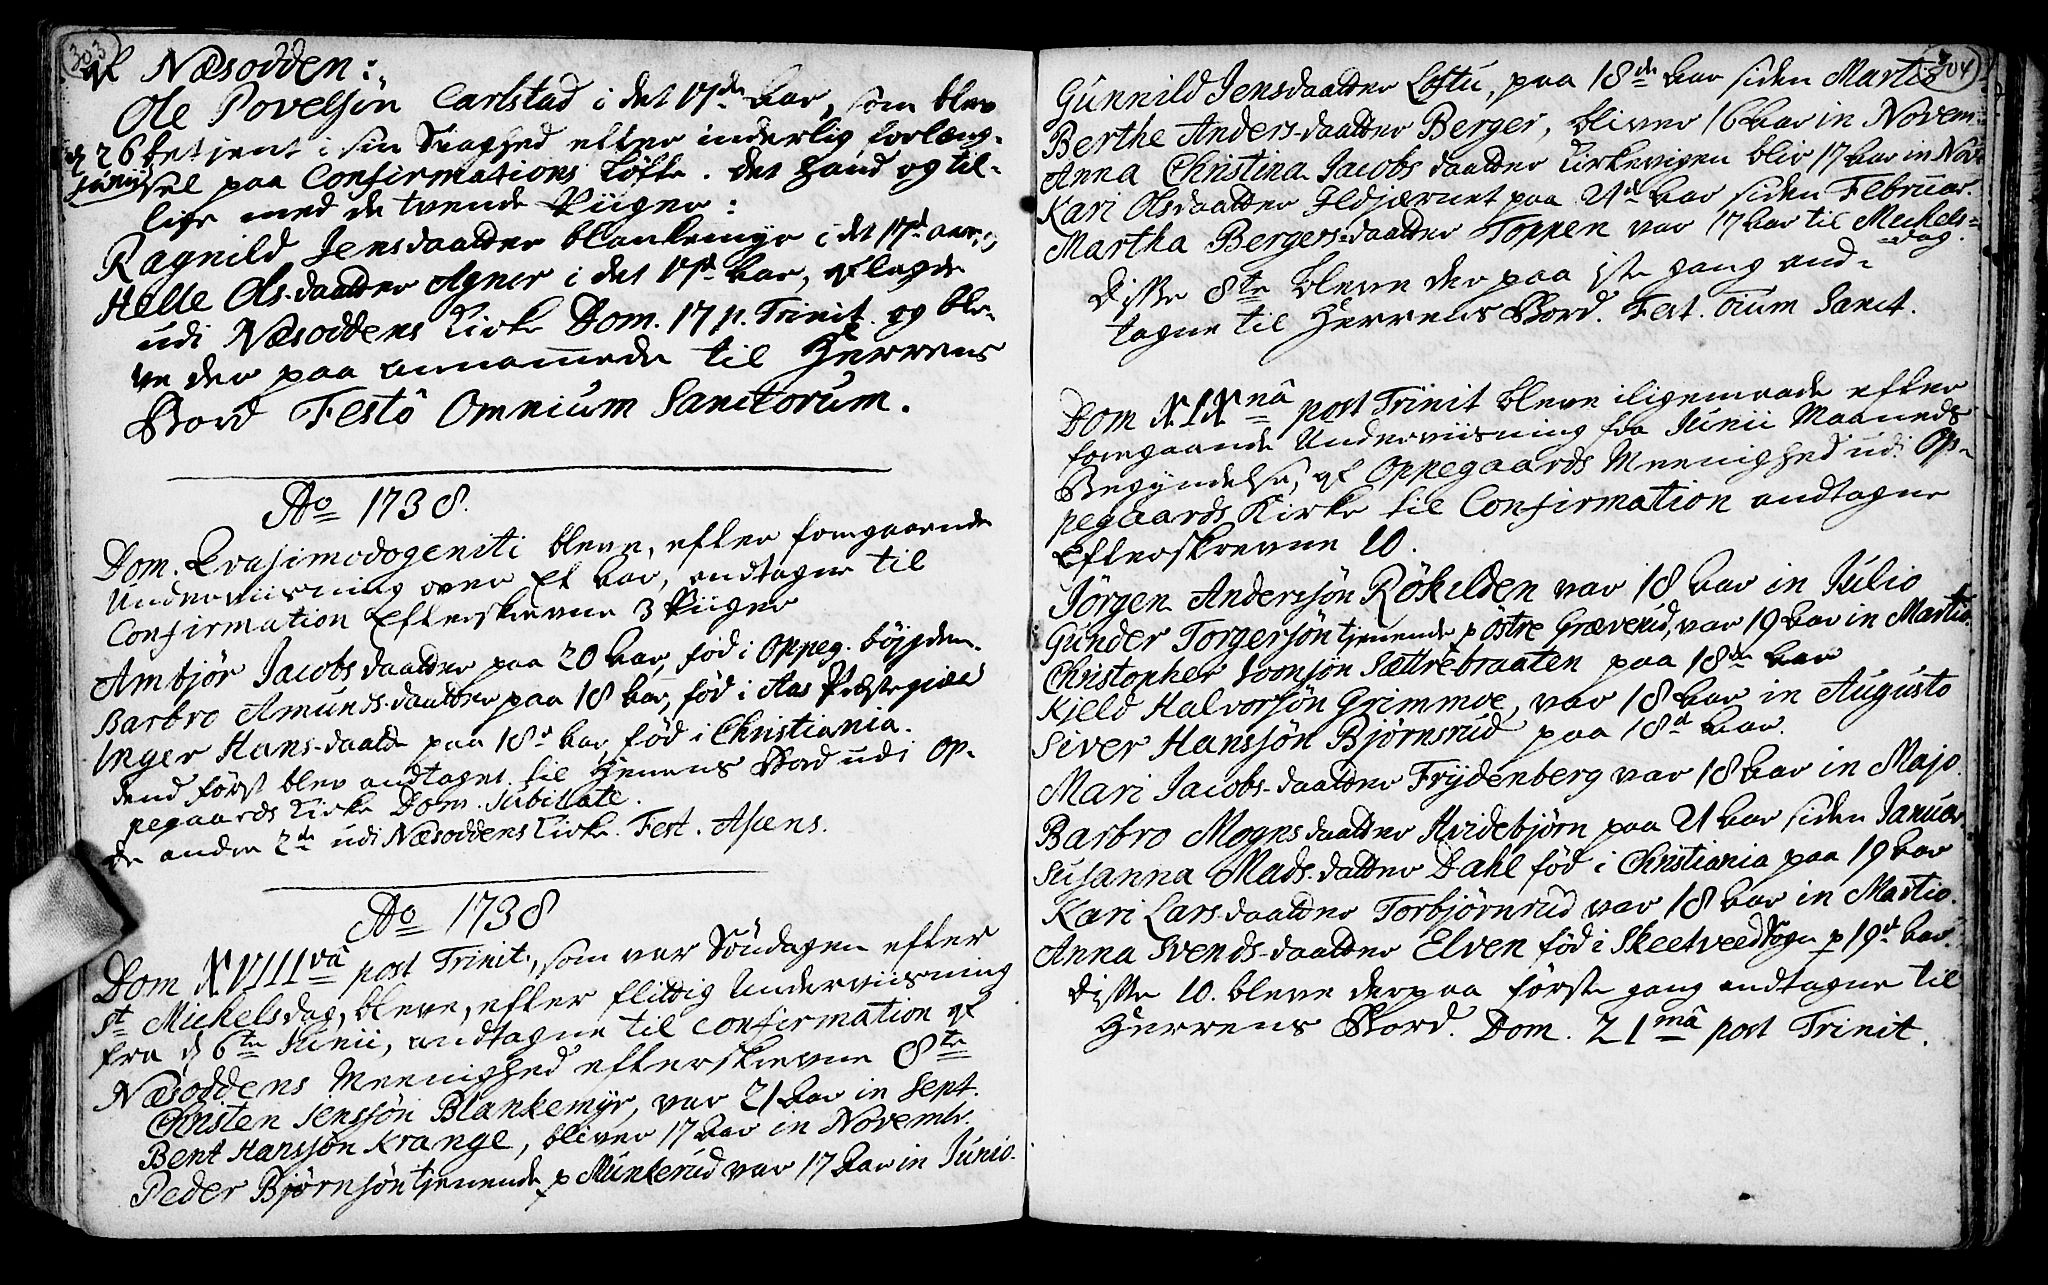 303
af Næsodden:
Ole Povelsön Carlstad i det 17de Aar, som blev
d 26 betient i sin Svaghed efter inderlig forlæng-
Junij sel paa Confirmations Löfte. Det haud og til-
lige med de tvende Piiger:
Ragnild Jensdaatter Blankemyr i det 17d aar,
Helle Ols-daatter Agner i det 17d Aar, aflagde
udi Næsoddens Kirke Dom. 17 p. Trinit. og ble-
ve der paa annamede til Herrens
Bord Festô Omnium Sanctorum.
Ao 1738.
Dom. Qvasimodogeniti bleve, efter foregaaende
Underviisning over Et Aar, andtagne til
Confirmation Efterskrevne 3 Piiger
Ambjör Jacobs daatter paa 20 Aar, föd i Oppeg. böjgden.
Barbro Amunds-daatter paa 18 Aar, föd i Aas Præstegield
Inger Hans-daatte paa 18d Aar föd i Christiania.
dend först blev andtaget til Herrens Bord udi Op-
pegaards Kirke Dom. Jubilate.
de andre 2de udi Næsoddens Kirke. Fest. Ascens.
Ao 1738
Dom XVIIIvâ post Trinit., som var Söndagen efter
St Michelsdag, bleve, efter flittig Underviisning
fra d 6te Junii, andtagne til Confirmation af
Næsoddens Meenighed efterskrevne 8te
Christen Jenssön Blankemyr, var 21 Aar in Sept.
Bent Hanssön Krange, bliver 17 Aar in Novembr.
Peder Björnsön tjenende p Munkerud var 17 Aar in Junio.
304
Gunnild Jensdaatter Loftu, paa 18de Aar siden Martio
Berthe Anders-daatter Berger, bliver 16 Aar in Novem:
Anna Christina Jacobs daatter Kirkevigen blir 17 Aar in Nov
Kari Olsdaatter Ildjærnet paa 21d Aar siden Februar.
Martha Bergers-daatter Toppen var 17 Aar til Michels-
dag.
Disse 8te bleve der paa 1ste gang and-
tagne til Herrens Bord. Fest. Oium Sanct.
Dom XIXnâ post Trinit bleve iligemaade efter
foregaaende Underviisning fra Junii Maaneds
Begyndelse, af Oppegaards Meenighed udi Op-
pegaards Kirke til Confirmation andtagne
Efterskrevne 10.
Jörgen Anderssön Rökelden var 18 Aar in Julio
Gunder Torgersön tjenende p Östre Græverud, var 19 Aar in Martio.
Christopher Joonsön Sættrebraaten paa 18de Aar
Kjeld Halvorsön Grimmoe, var 18 Aar in Augusto
Siver Hanssön Björnsrud paa 18d Aar.
Mari Jacobs-daatter Frydenberg var 18 Aar in Majo.
Barbro Mogns daatter Hvidebjörn paa 21 Aar siden Januar.
Susanna Mads-datter Dahl föd i Christiania paa 19 Aar
Kari Lars-daatter Torbjörnrud var 18 Aar in Martio.
Anna Svends-daatter Elven föd i Skeetveed Sogn p 19d Aar.
Disse 10. bleve derpaa förste gang andtagne til
Herrens Bord. Dom. 21mâ post Trinit.